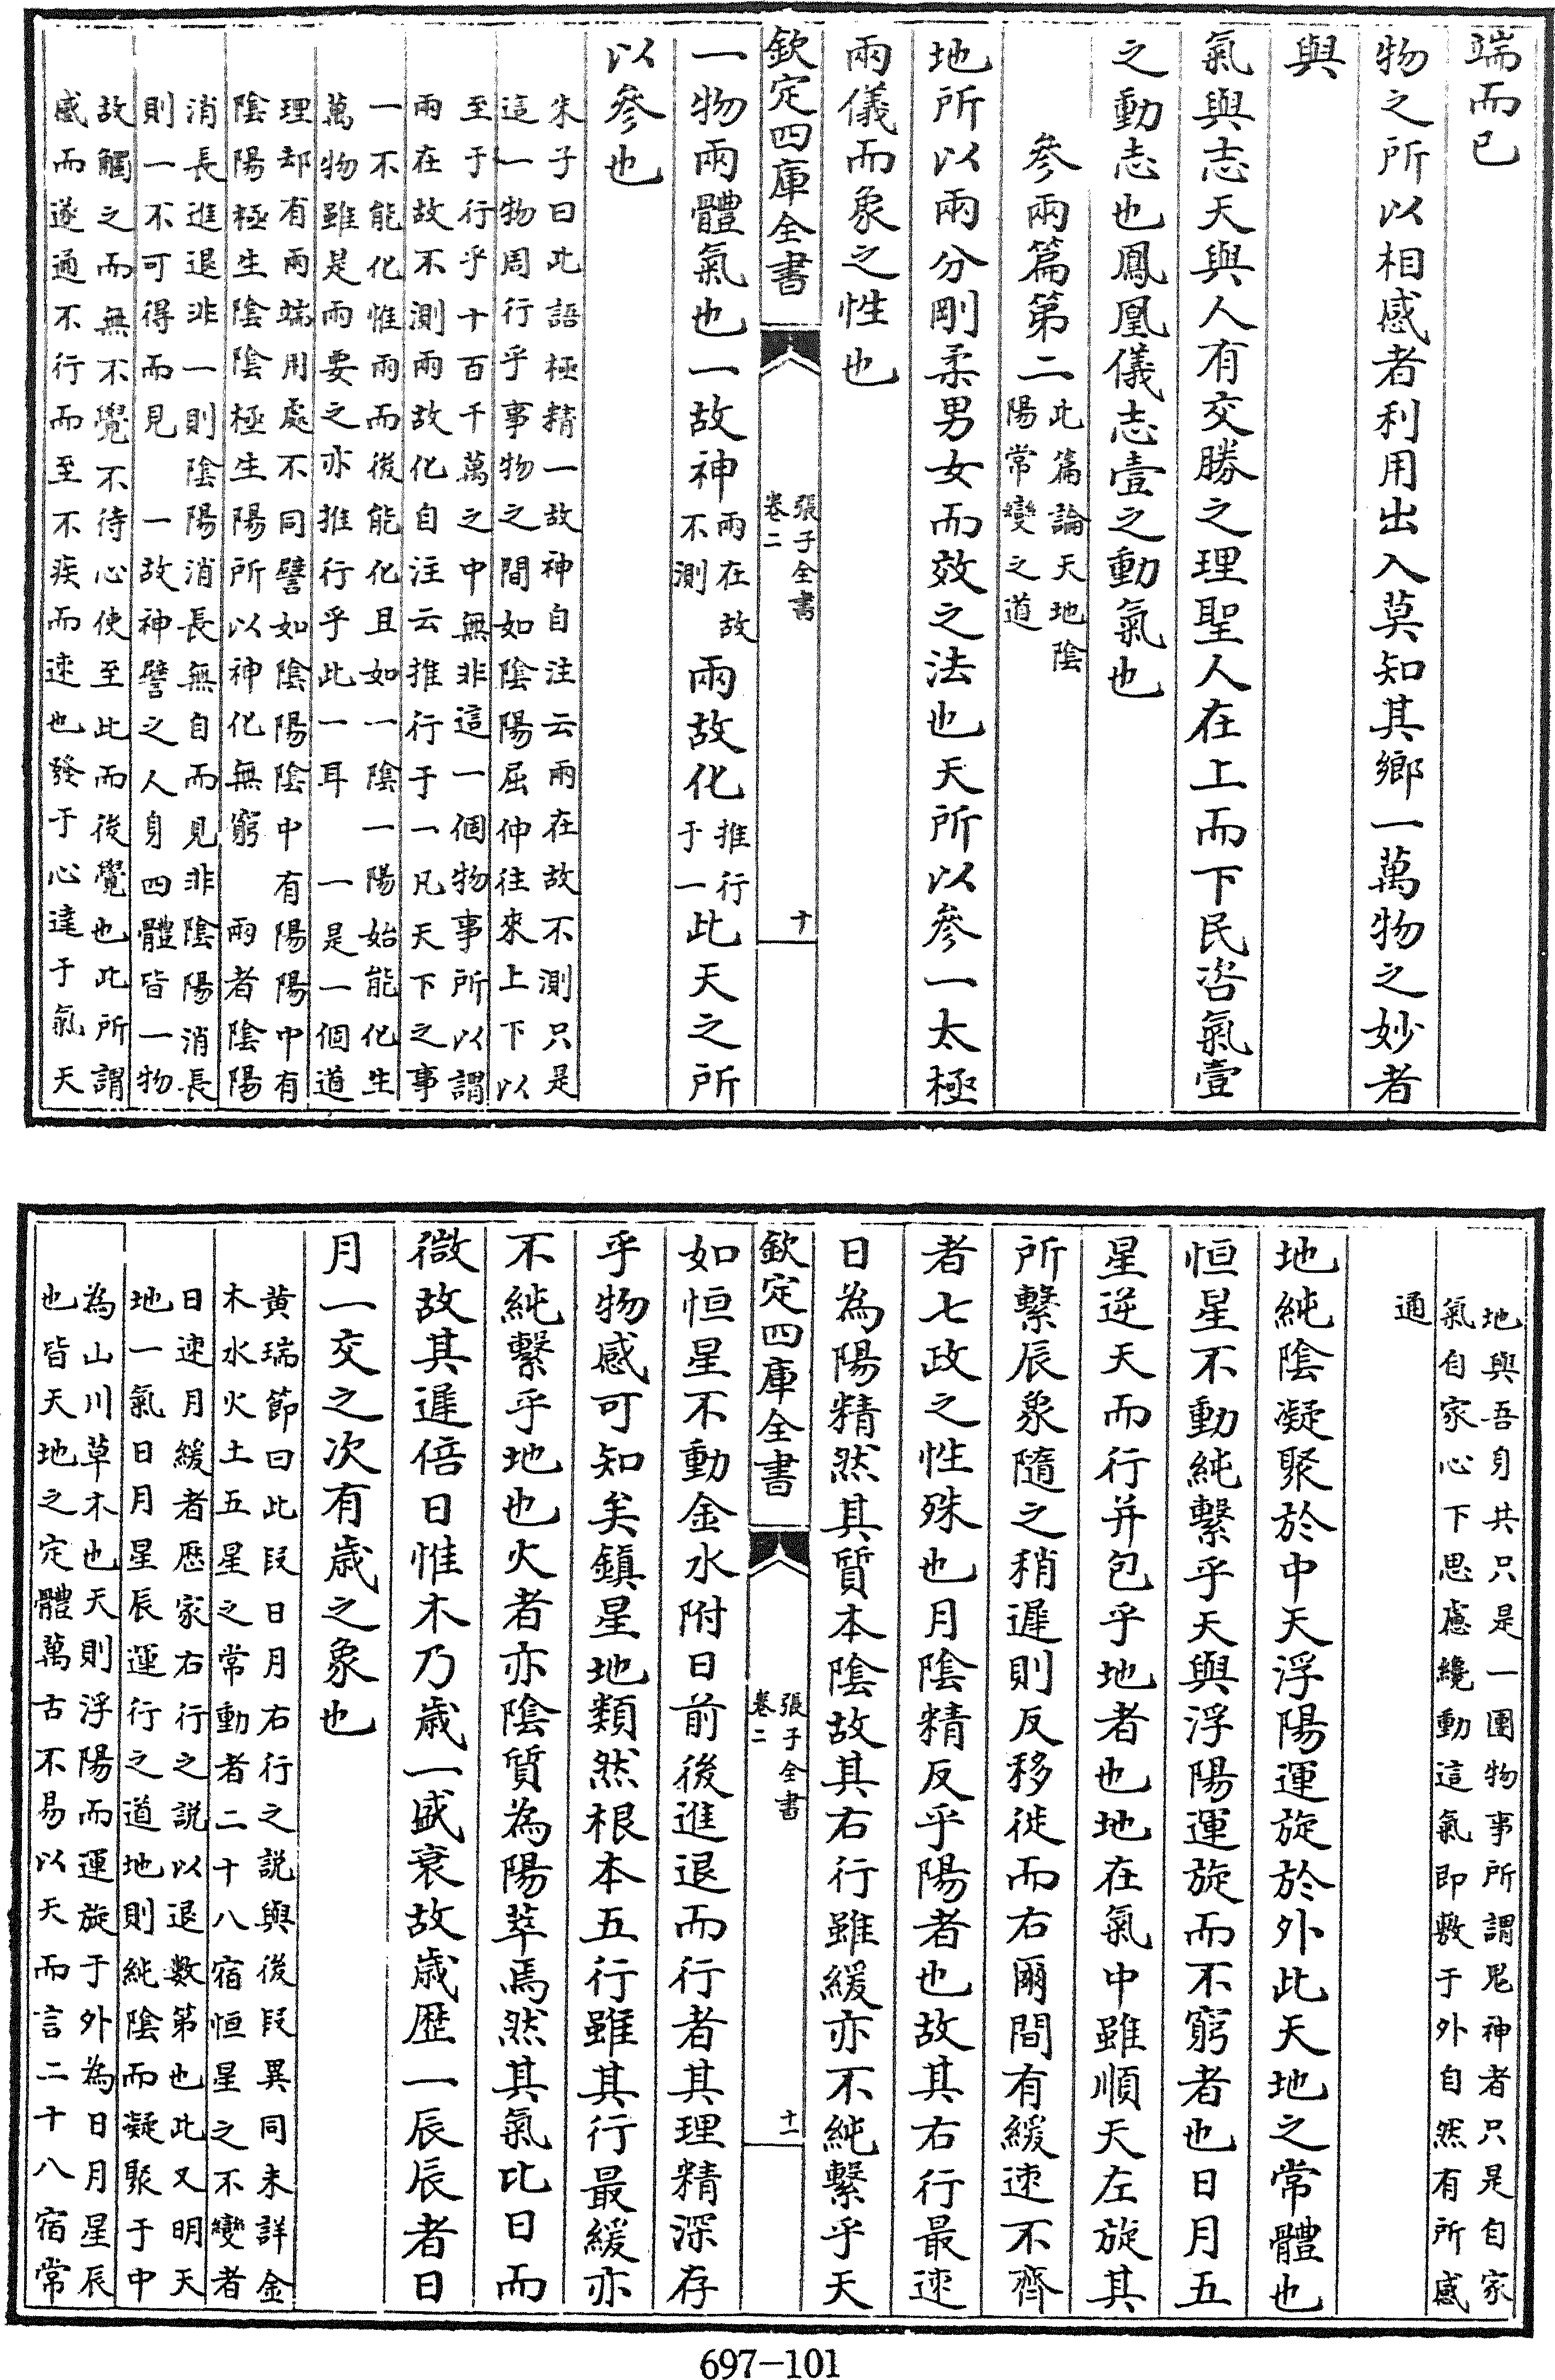 端而已
物之所以相感者利用出入莫知其鄉一萬物之妙者
與
氣與志天與人有交勝之理聖人在上而下民咨氣壹
之動志也鳳凰儀志壹之動氣也
參兩篇第二
此篇論天地陰
陽常變之道
地所以兩分剛柔男女而效之法也天所以參一太極
兩儀而象之性也
欽定四庫全書
張子全書
卷二
十
一物兩體氣也一故神
兩在故
不測
兩故化
推行
于一
此天之所
以參也
朱子曰此語極精一故神自注云兩在故不測只是
這一物周行乎事物之間如陰陽屈伸往來上下以
至于行乎十百千萬之中無非這一個物事所以謂
兩在故不測兩故化自注云推行于一凡天下之事
一不能化惟兩而後能化且如一陰一陽始能化生
萬物雖是兩要之亦推行乎此一耳 一是一個道
理却有兩端用處不同譬如陰陽陰中有陽陽中有
陰陽極生陰陰極生陽所以神化無窮 兩者陰陽
消長進退非一則陰陽消長無自而見非陰陽消長
則一不可得而見 一故神譬之人身四體皆一物
故觸之而無不覺不待心使至此而後覺也此所謂
感而遂通不行而至不疾而速也發于心達于氣天
地與吾身共只是一團物事所謂鬼神者只是自家
氣自家心下思慮纔動這氣即敷于外自然有所感
通
地純陰凝聚於中天浮陽運旋於外此天地之常體也
恒星不動純繫乎天與浮陽運旋而不窮者也日月五
星逆天而行并包乎地者也地在氣中雖順天左旋其
所繫辰象隨之稍遲則反移徙而右爾間有緩速不齊
者七政之性殊也月陰精反乎陽者也故其右行最速
日為陽精然其質本陰故其右行雖緩亦不純繫乎天
欽定四庫全書
張子全書
卷二
十一
如恒星不動金水附日前後進退而行者其理精深存
乎物感可知矣鎮星地類然根本五行雖其行最緩亦
不純繫乎地也火者亦陰質為陽萃焉然其氣比日而
微故其遲倍日惟木乃歲一盛衰故歲歷一辰辰者日
月一交之次有歲之象也
黄瑞節曰此段日月右行之說與後段異同未詳金
木水火土五星之常動者二十八宿恒星之不變者
日速月緩者歷家右行之說以退數第也此又明天
地一氣日月星辰運行之道地則純陰而凝聚于中
為山川草木也天則浮陽而運旋于外為日月星辰
也皆天地之定體萬古不易以天而言二十八宿常
697-101